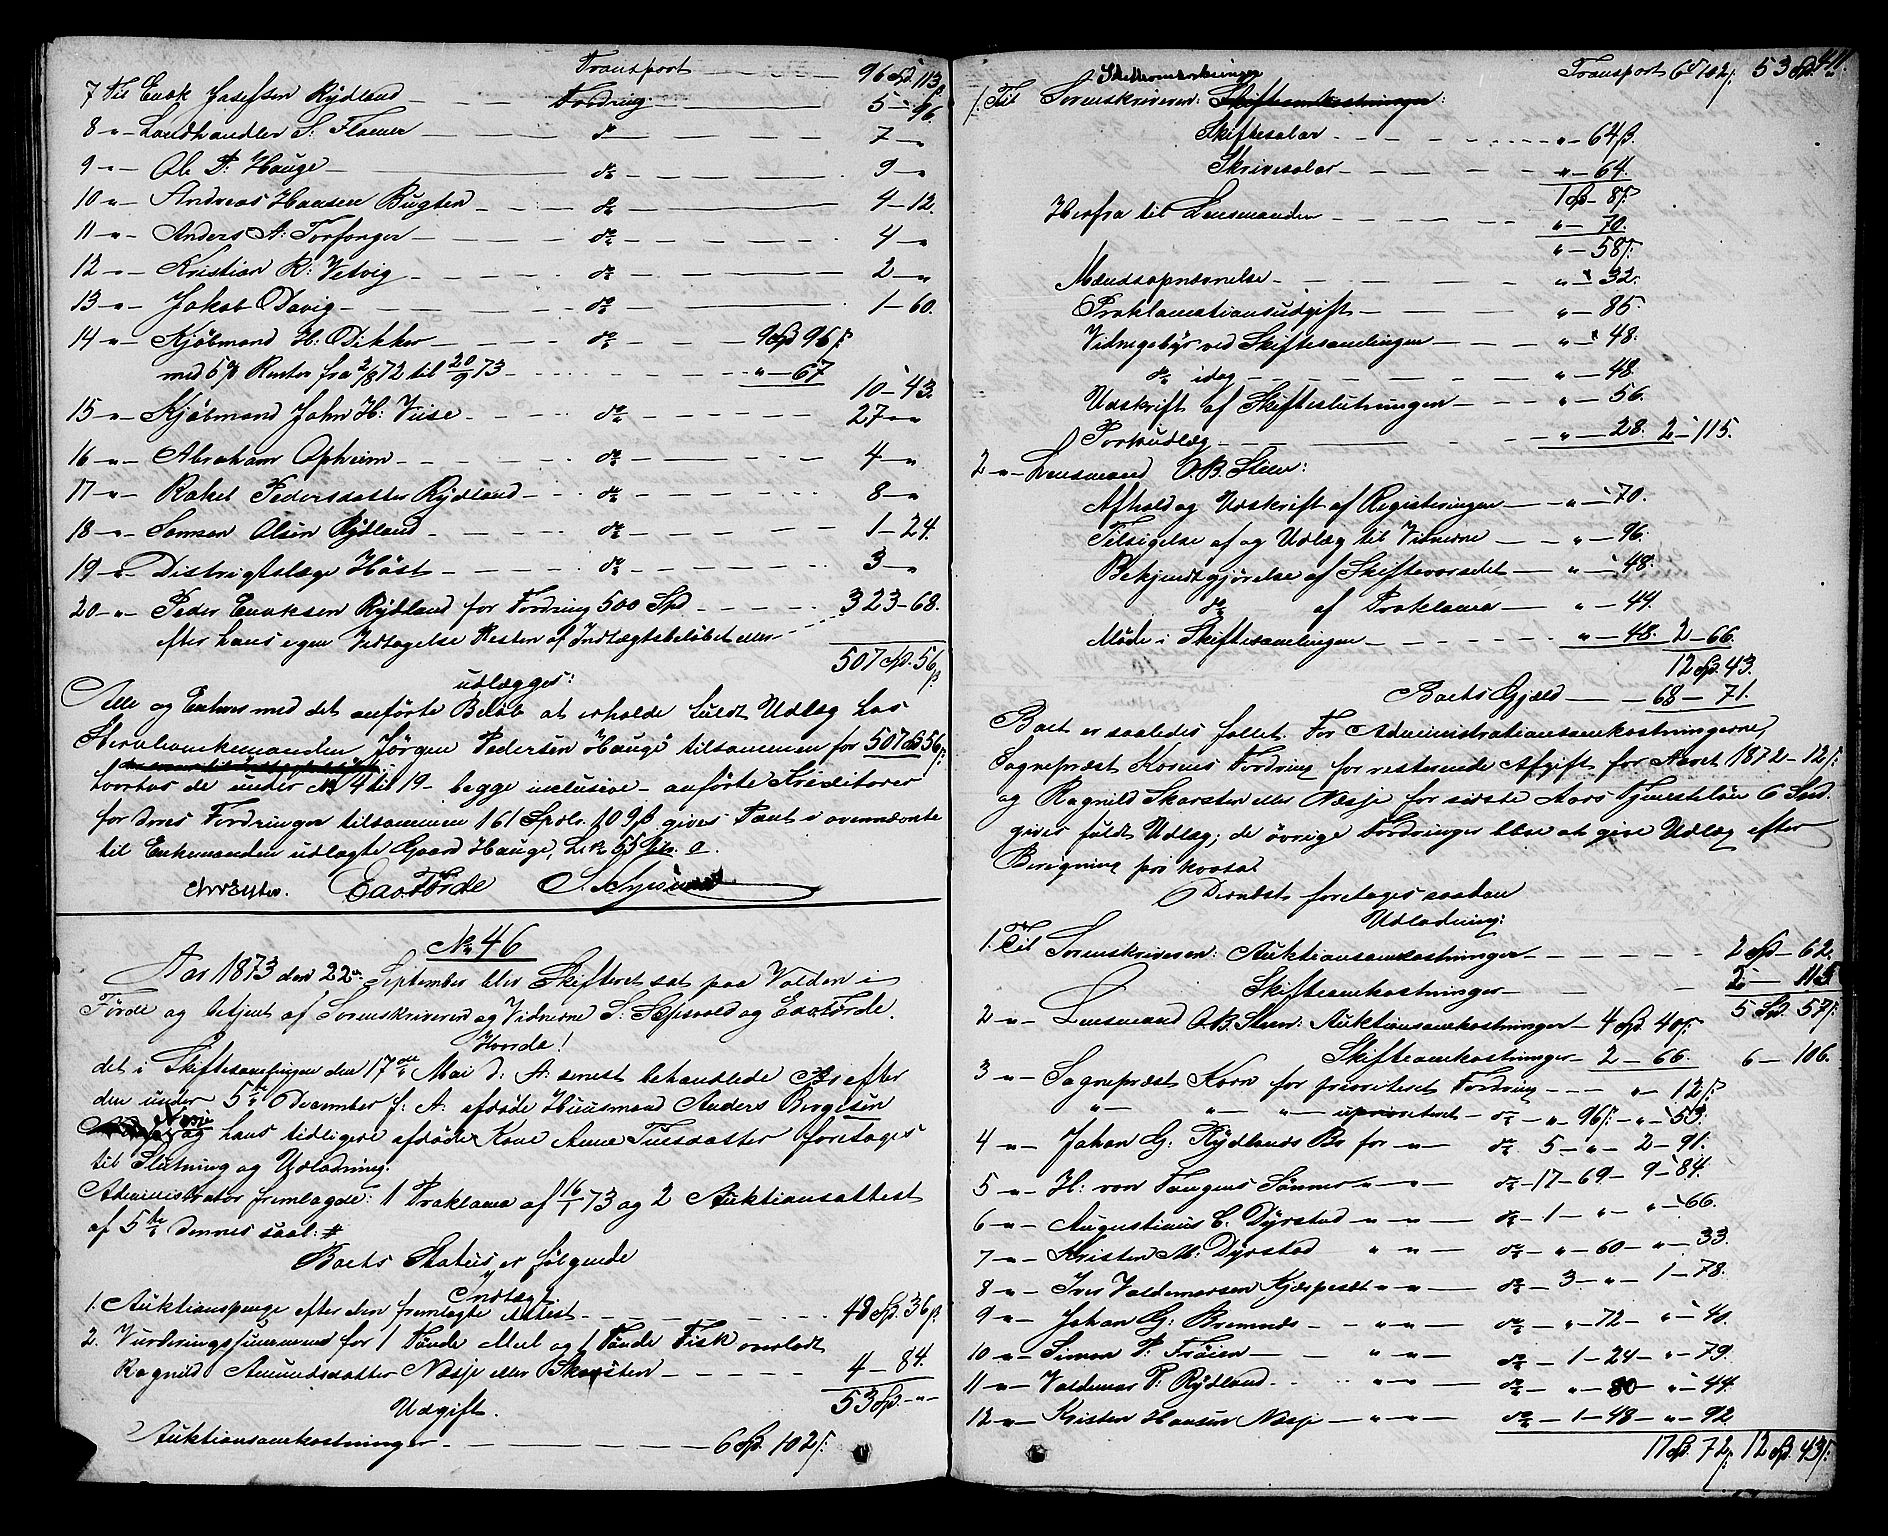 Transport — 96 Spd. 113 β
7 Til Enok Josefsen Rydland — Fordring — 5 - 96.
8 " Landhandler S: Flaauer — do — 7 - "
9 " Ole P. Hauge — do — 9 - "
10 " Andreas Hansen Bugten — do — 4 - 12.
11 " Anders A: Torfanger — do — 4 - "
12 " Kristian R: Vetvig — do — 2 - "
13 " Jakob Davig — do — 1 - 60.
14 " Kjöbmand H: Dikker — do — 9 Spd 96 β:
med 5 % Renter fra 2/8 72 til 20/9 73 — " - 67 10 - 43.
15 " Kjöbmand John H: Viise — do — 27 - "
16 " Abraham Opheim — do — 4 - "
17 " Rakel Pedersdatter Rydland — do — 8 - "
18 " Samson Olsen Rydland — do — 1 - 24.
19 " Distrigtslæge Höst — do — 3 - "
20 " Peder Enoksen Rydland for Fordring 500 Spd — 323 - 68.
efter hans egen Vedtagelse Resten af Indtægtsbelöbet eller
507 Spd. 56 β
udlægges:
Alle og Enhver med det anförte Belöb at erholde fuldt Udlæg hos
Stervboenkemanden Jörgen Pedersen Hauge tilsammen for 507 Spd 56 β:
hvorhos de under No 4 til 19 - begge inclusive - anförte Kreditorer
for deres Fordringer tilsammen 161 Spdlr. 109 β gives Pant i ovennævnte
til Enkemanden udlagte Gaard Hauge, L. No 65 a.
E. A. Förde S. Sepsvold
No 46
Aar 1873 den 22de September blev Skifteret sat paa Volden i
Förde og betjent af Sorenskriveren og Vidnerne S: Sepsvold og E. A. Förde.
Hvorda!
det i Skiftesamlingen den 17de Mai d: A: senest behandlede Bo efter
den under 5te December f: A: afdöde Huusmand Anders Börgesen
Næsje og hans tidligere afdöde Kone Anne Tuesdatter foretages
til Slutning og Udlodning.
Administrator fremlagde: 1 Proklama af 16/1 73 og 2 Auktionsattest
af 5te dennes saal: #
Boets Status er fölgende
Indtægt.
1. Auktionspenge efter den fremlagte Attest — 48 Spd 36 β.
2. Vurderingssummerne for 1 Tönde Meel og 1 Tönde Fisk overladt
Ragnild Amundsdatter Næsje eller Skorsten — 4 - 84.
53 Spd. - "
Udgift.
Auktionsomkostninger — 6 Spd. 102 β:
411
Transport 6 Spd 102 β. 53 Spd. "
1. Til Sorenskriveren: Skifteomkostninger:
Skiftesalær — " - 64 β.
Skrivesalær — " - 64.
1 Spd - 8 β.
Herfra til Lensmanden — " - 70.
" - 58 β.
Mændsopnævnelse — " - 32.
Proklamationsudgift — " - 85
Vidnegebyr ved Skiftesamlingen — " - 48.
do idag — " - 48.
Udskrift af Skifteslutningen — " - 56.
Portoudlæg — " - 28. 2 - 115.
2 " Lensmand O. B. Steen:
Afhold og Udskrift af Registeringen — " - 70.
Tilsigelse af og Udlæg til Vidnerne — " - 96.
Bekjendtgjörelse af Skifteværsdet — " - 48.
do af Proklama — " - 44.
Möde i Skiftesamlingen — " - 48. 2 - 66.
12 Spd. 43.
Boets Gjæld — 68 - 71.
Boet er saaledes fallet. For Administrationsomkostningerne,
Sognepræst Korns Fordring for resterende Afgift for Aaret 1872 - 12 β:
og Ragnild Skorsten eller Næsje for sidste Aars Tjenestelön 6 Spd.
gives fuldt Udlæg; de övrige Fordringer blive at give Udlæg efter
Beregning pro kvota.
Dernæst foretages saadan
Udlodning:
1. Til Sorenskriveren: Auktionsomkostninger — 2 Spd - 62.
Skifteomkostninger — 2 - 115
5 Spd. 57 β:
2 " Lensmand O. B. Steen: Auktionsomkostninger — 4 Spd. 40 β:
Skifteomkostninger — 2 - 66. 6 - 106.
3 " Sognepræst Korn for prioriteret Fordring — " - 12 β
" " " uprioriteret — do " - 96 β: " - 53.
4 " Johan G: Rydlands Bo for " do 5 - " - 2 - 91.
5 " H: von Tangens Sönner " " do - 17 - 69 - 9 - 84.
6 " Augustinus C. Dyrstad " " do - 1 - " - " - 66.
7 " Kristen M: Dyrstad " " do - " - 60 - " - 33.
8 " Iver Valdemarsen Kjæspestt " " do - 3 - " - 1 - 78.
9 " Johan G: Bremnes " " do - " - 72 - " - 40.
10 " Simon P. Fröien " " do - 1 - 24 - " - 79.
11 " Valdemar P: Rydland " " do - " - 80 - " - 44.
12 " Kristen Hansen Næsje " " do - 1 - 48 - " - 92.
17 Spd. 72 β. 12 Spd. 43 β: